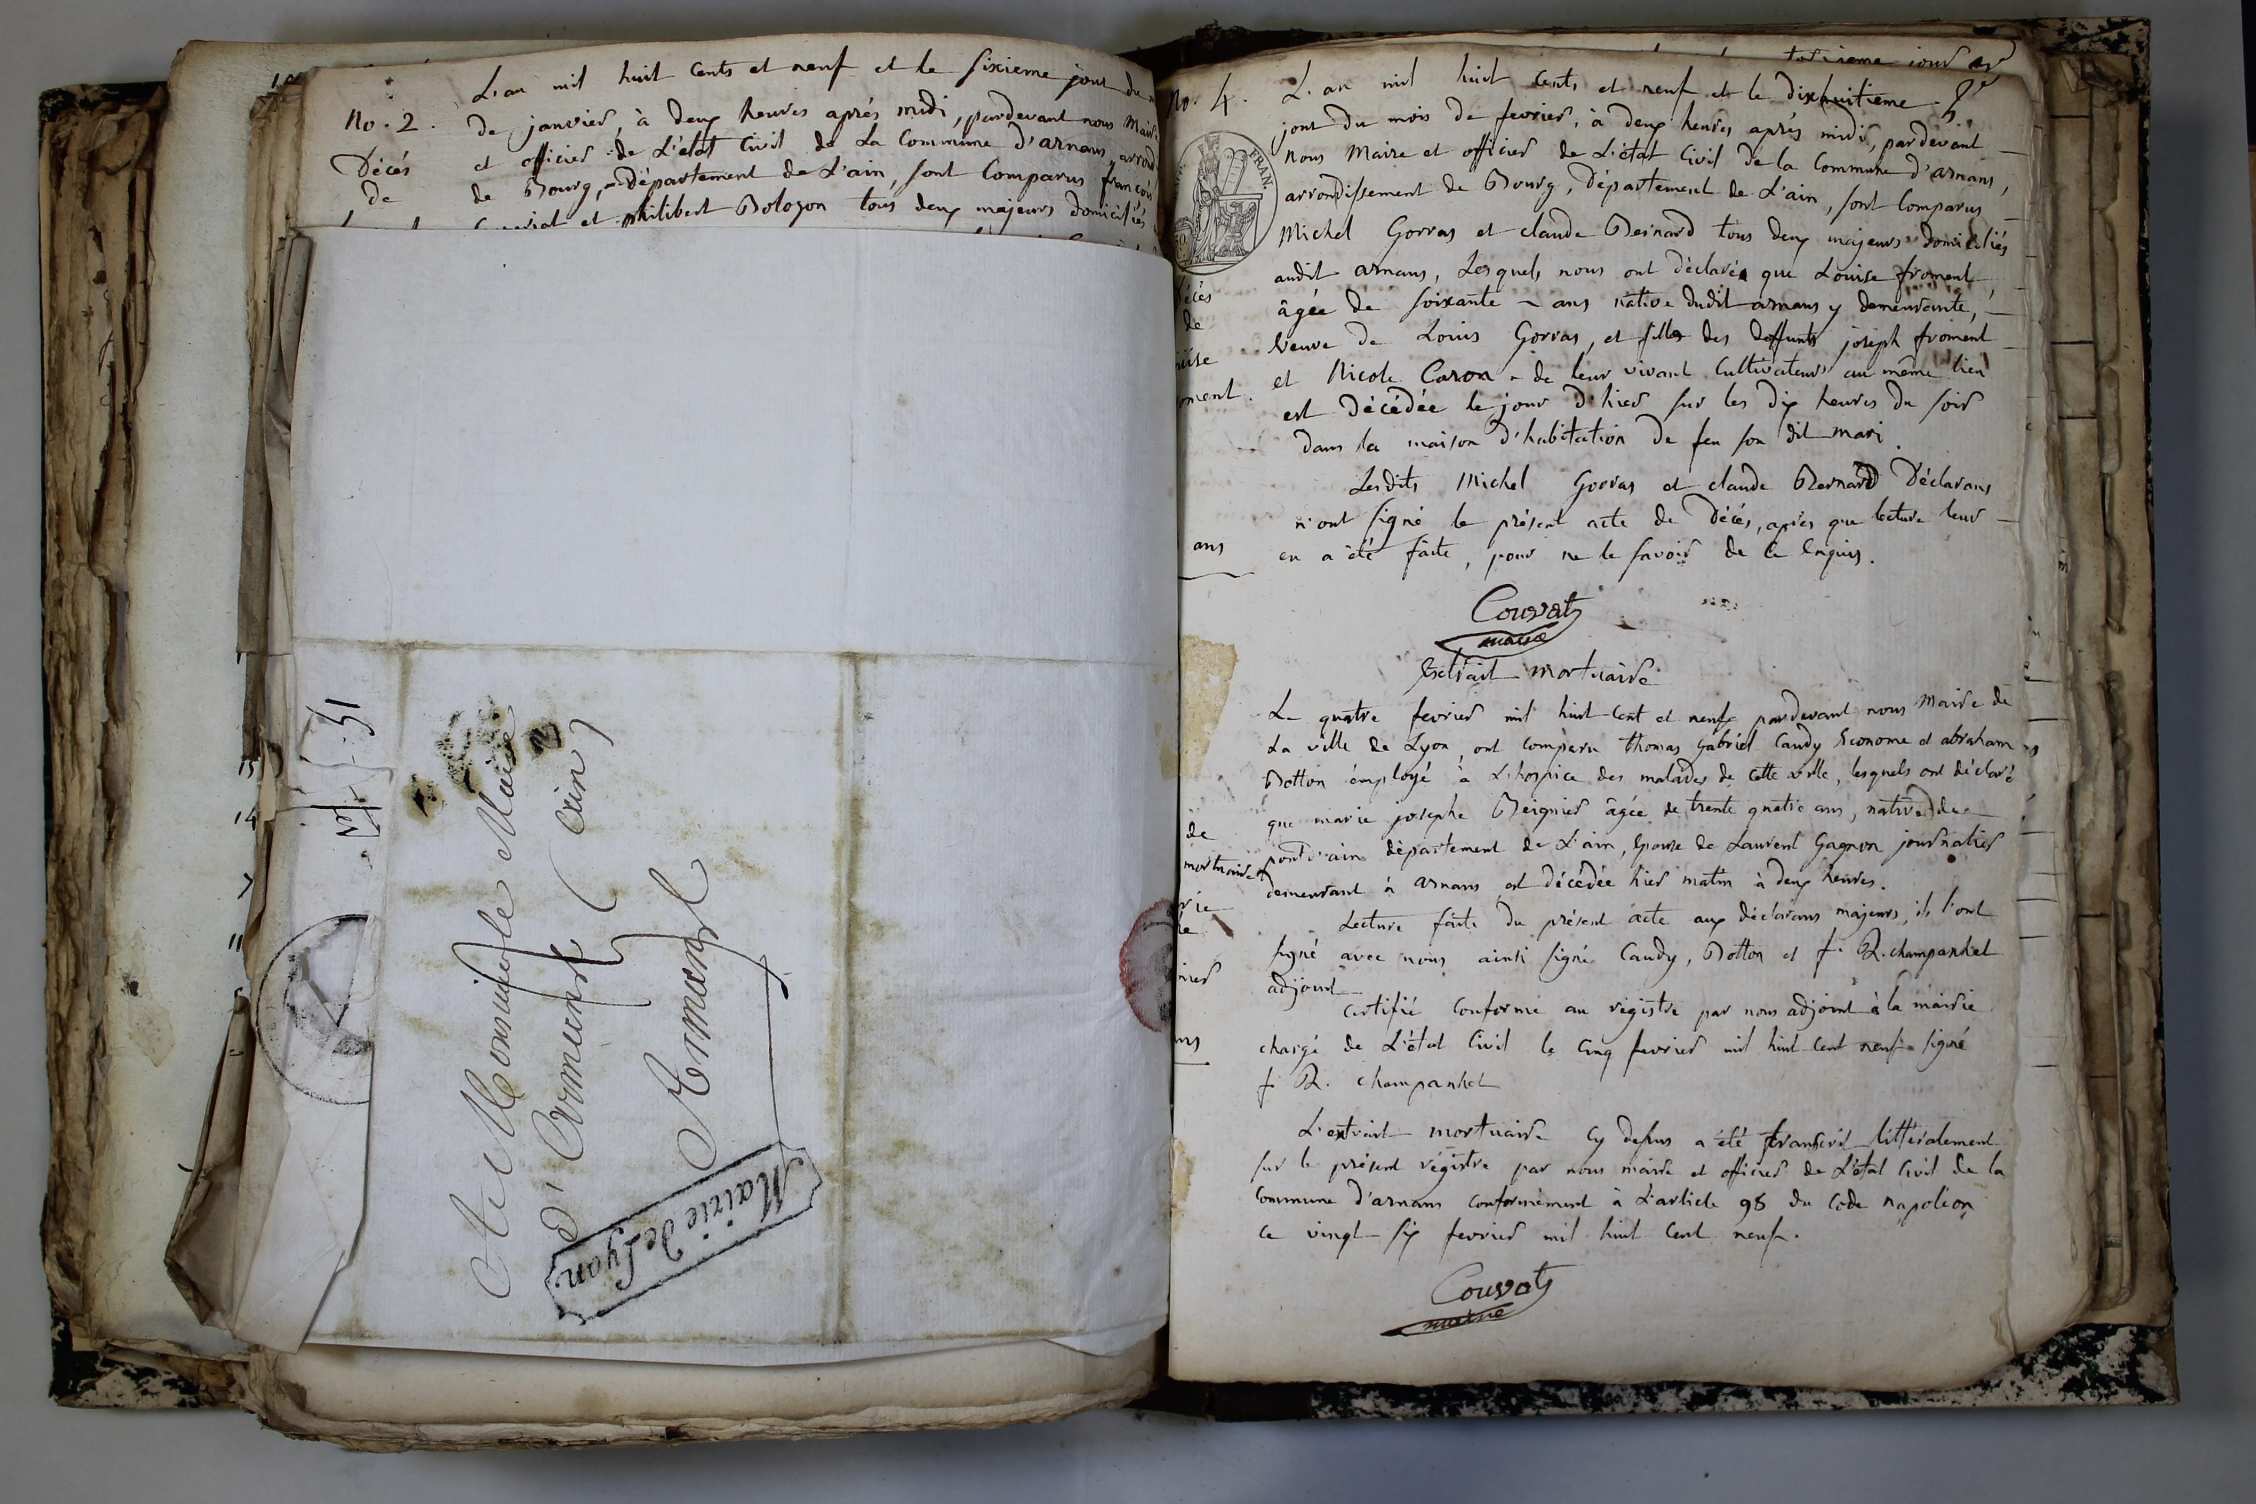 L'an mil huit cents et neuf et le sixieme jour du
No. 2.
de janvier, à deux heures après midi, pardevant nous Maire
Décés
et officier de L'état Civil de La Commune d'arnans, arrond
de
de Bourg, département de L'ain, sont Comparus francois
et philibert Bolozon tous deux majeurs domiciliés
15
14
7
11
A Monsieur le Maire
D'Armans (ain)
Armans
Mairie de Lyon
No. 4.
L'an mil huit Cents et neuf et le dixhuitieme
jour du mois de fevrier, à deux heures après midi, pardevant
FRAN.
nous Maire et officier de L'état Civil de la Commune d'arnans,
arrondissement de Bourg, Département de L'ain, sont Comparus
Michel Gorras et claude Bernard tous deux majeurs domiciliés
audit arnans, Lesquels nous ont déclarés que Louise froment
décés
âgée de soixante ans native dudit arnans y demeurante,
de
Veuve de Louis Gorras, et fille des deffunts joseph froment
ouise
et Nicole Caron de leur vivant Cultivateurs au même lieu
oment.
est Décédée le jour d'hier sur les dix heures du soir
dans la maison d'habitation de feu son dit mari.
Lesdits Michel Gorras et claude Bernard Déclarans
n'ont signé le présent acte de Décés, après que lecture leur
ans
en a été faite, pour ne le savoir de ce Enquis.
Couvat
maire
Extrait mortuaire
Le quatre fevrier mil huit Cent et neuf pardevant nous Maire de
La ville de Lyon, ont comparu thomas Gabriel Caudy Econome et abraham
Botton employé à L'hospice des malades de Cette ville, lesquels ont déclaré
que marie josephe Beignier âgée de trente quatre ans, native de
de
pont d'ain département de L'ain, Epouse de Laurent Gagnon journalier
mortuaire
demeurant à arnans est décédée hier matin à deux heures.
rie
Lecture faite du présent acte aux déclarans majeurs, ils l'ont
signé avec nous ainsi signé Caudy, Botton et f. R. champanhet
nier
adjoint
Certifié Conforme au régistre par nous adjoint à la mairie
ns
chargé de L'état Civil le Cinq fevrier mil huit Cent neuf signé
f R. champanhet
L'extrait mortuaire Cy dessus a été transcrit littéralement
sur le présent régistre par nous maire et officier de L'état Civil de la
Commune d'arnans Conformément à L'article 98 du Code napoléon
Ce vingt six fevrier mil huit Cent neuf.
Couvat
maire